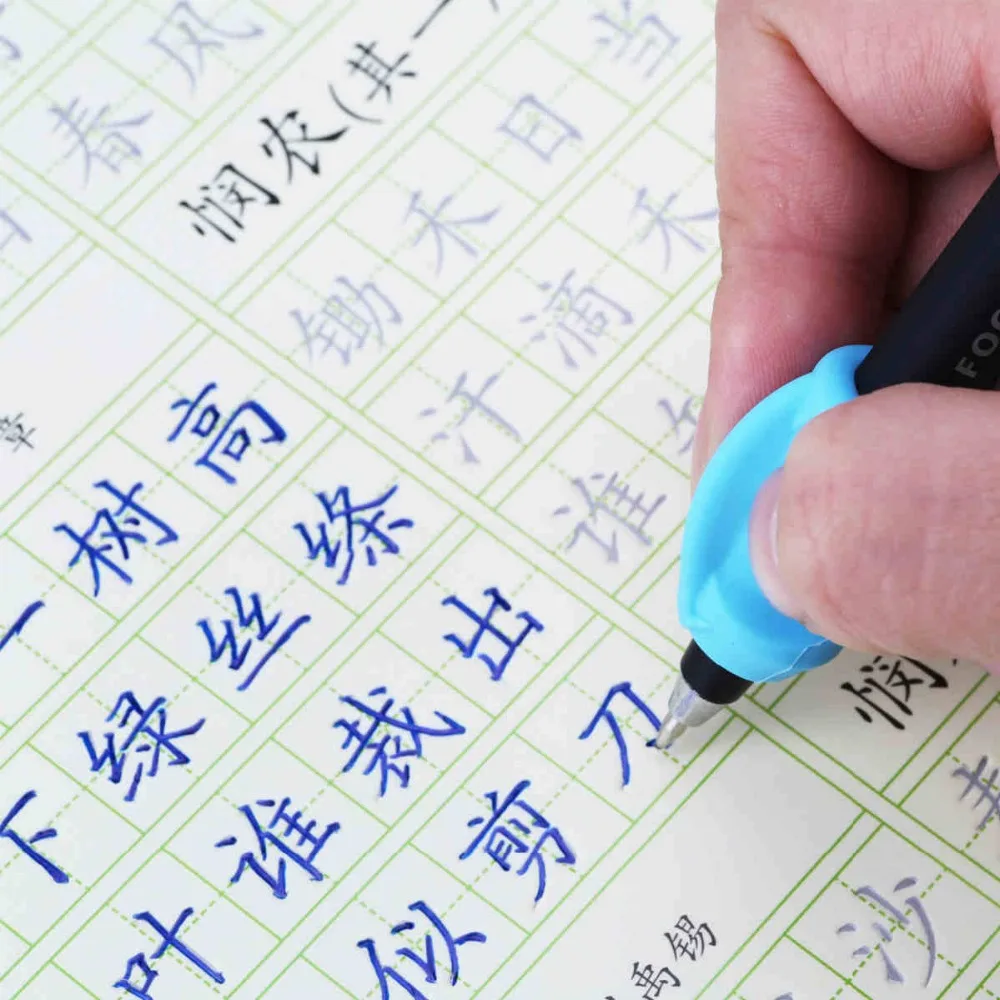 春风
悯农(其一
锄禾日当
汗滴禾
谁
章
一树高
下绿丝绦
叶谁裁出
似剪刀
悯
禹锡
沙
FOO